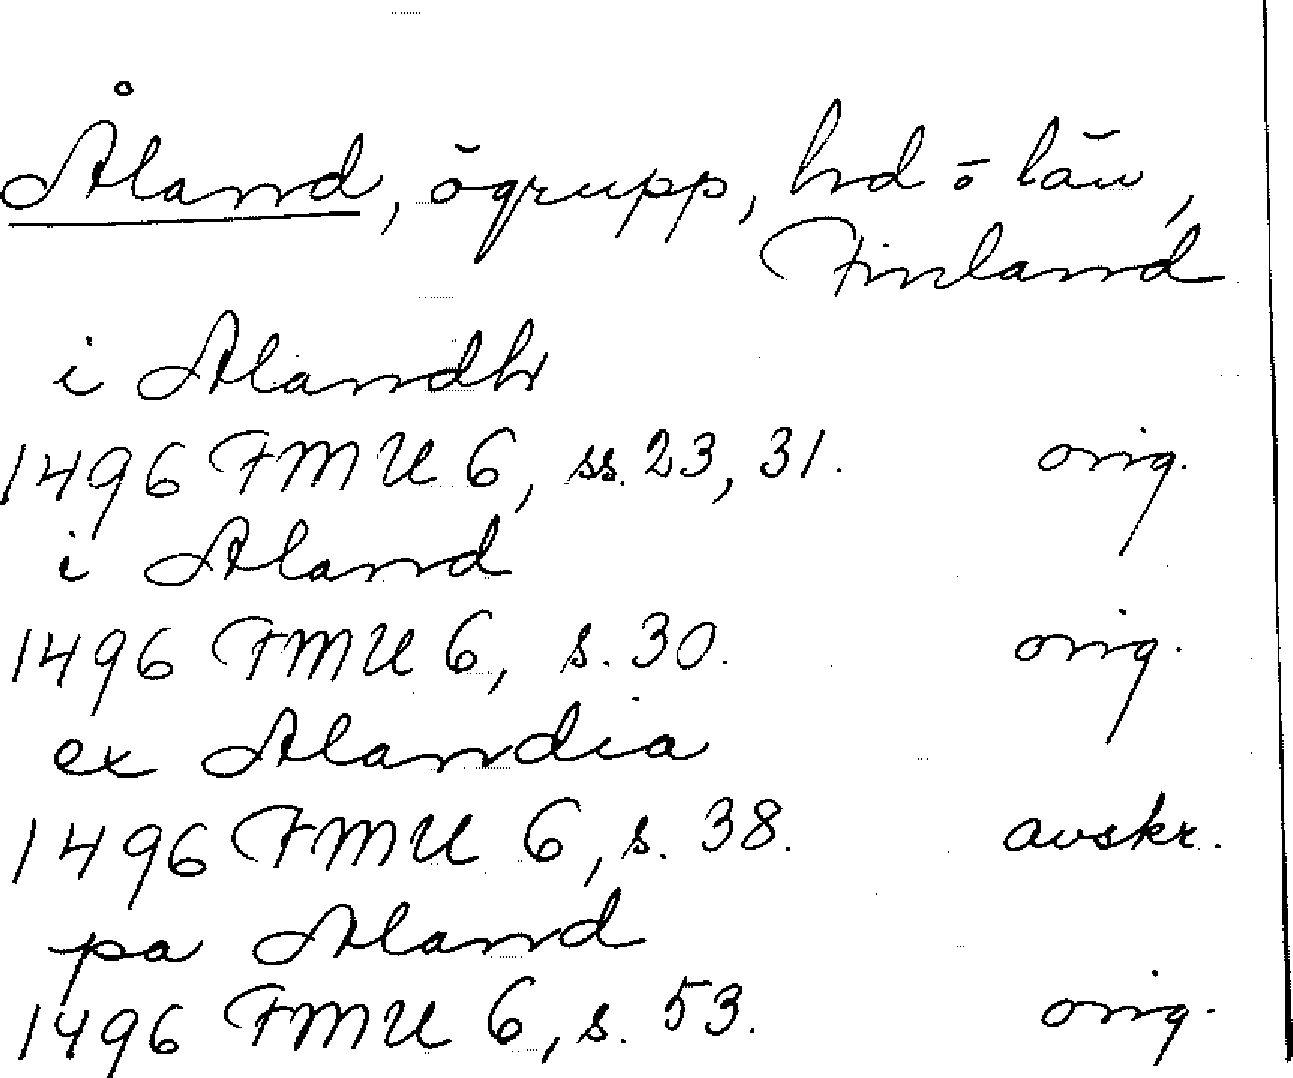 Åland, ögrupp, hd ō län,
Finland
i Alandh
1496 FMU 6, ss. 23, 31. orig.
i Aland
1496 FMU 6, s. 30. orig.
ex Alandia
1496 FMU 6, s. 38. avskr.
pa Aland
1496 FMU 6, s. 53. orig.